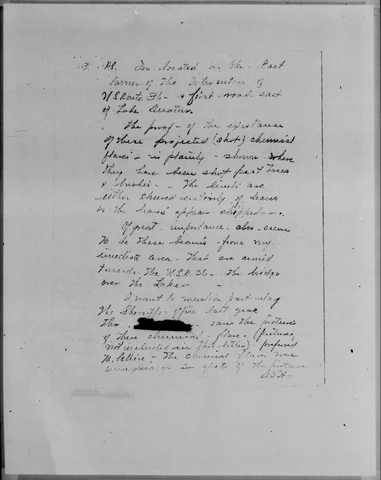 3. P.S. I'm located on the East
corner of the intersection of
U.S. Route 36 - & first road east
of Lake Decatur.
The proof - of the existance
of these projected (shot) chemical
flares - is plainly - shown where
they have been shot past trees
& bushes - The limbs are
either sheared entirely of leaves
or the leaves appear chipped - .
Of great importance also seem
to be these beams from my
imediate area - that are aimed
towards the U.S.R. 36 - the bridge
over the Lake -
I want to mention
the Sheriff's office last year
the saw the pictures
of these chemical flares (pictures
not included in this letter)
The chemical flares were
in of the pictures